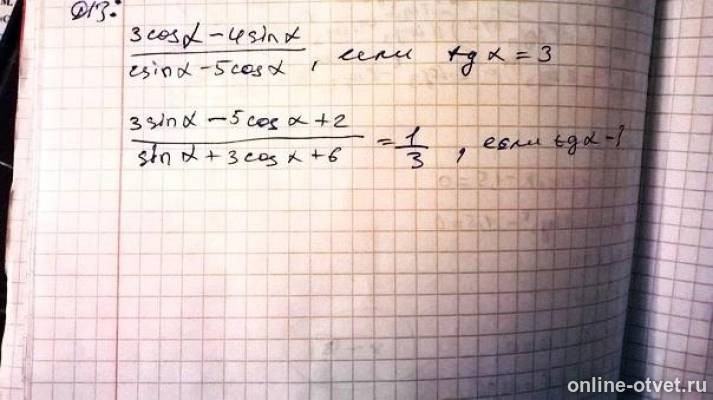 Д13:
3cosα - 4sinα
2sinα - 5cosα , если tg α = 3
3sinα - 5cosα + 2
sinα + 3cosα + 6 = 1/3 , если tgα - ?
online-otvet.ru